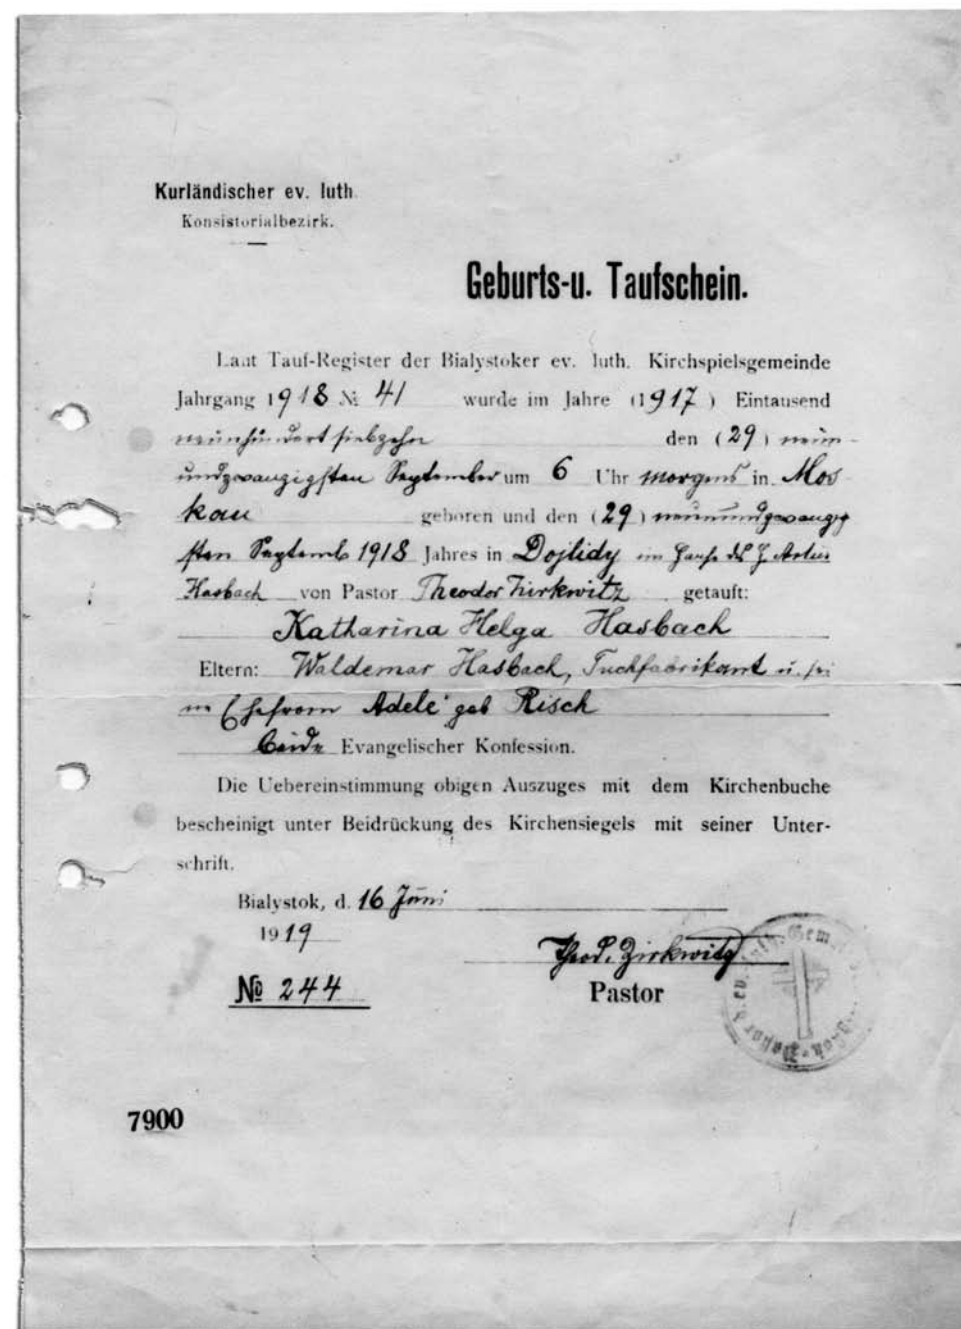 Kurländischer ev. luth.
Konsistorialbezirk.
Geburts-u. Taufschein.
Laut Tauf-Register der Bialystoker ev. luth. Kirchspielsgemeinde
Jahrgang 1918 № 41 wurde im Jahre (1917) Eintausend
neunhundert siebzehn den (29) neun-
undzwanzigsten September um 6 Uhr morgens in Mos
kau geboren und den (29) neunundzwanzig
sten Septemb 1918 Jahres in Dojlidy im Hause des H. Artur
Hasbach von Pastor Theodor Zirkwitz getauft:
Katharina Helga Hasbach
Eltern: Waldemar Hasbach, Tuchfabrikant u. sei
ne Ehefrau Adele geb Risch
beide Evangelischer Konfession.
Die Uebereinstimmung obigen Auszuges mit dem Kirchenbuche
bescheinigt unter Beidrückung des Kirchensiegels mit seiner Unter-
schrift.
Bialystok, d. 16 Juni
1919
Theod. Zirkwitz
№ 244
Pastor
7900